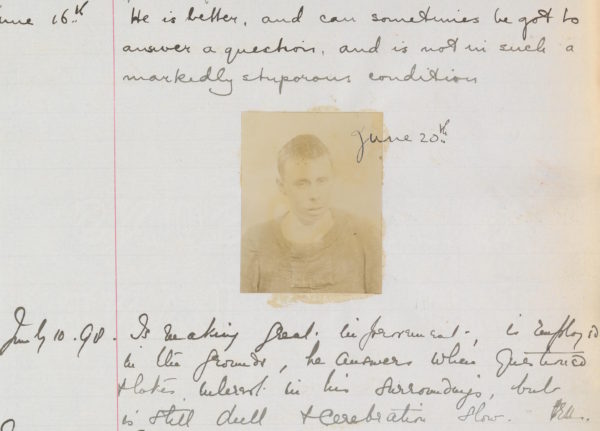 June 16th He is better, and can sometimes be got to
answer a question, and is not in such a
markedly stuporous condition
June 20th
July 10. 98. Is making great improvement, is employed
in the grounds, he answers when questioned
& takes interest in his surroundings, but
is still dull & cerebration slow.